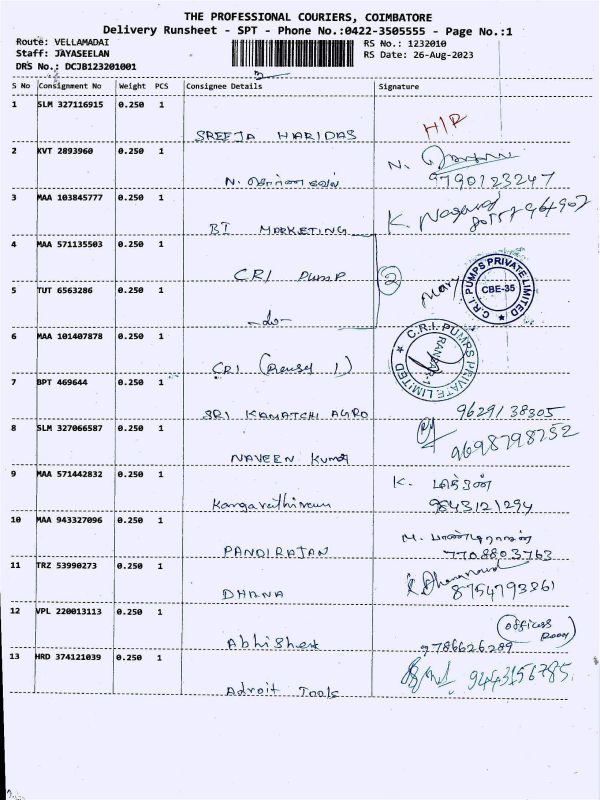 THE PROFESSIONAL COURIERS, COIMBATORE
Delivery Runsheet - SPT - Phone No.:0422-3505555 - Page No.:1
Route: VELLAMADAI RS No.: 1232010
Staff: JAYASEELAN RS Date: 26-Aug-2023
DRS No.: DCJB123201001
S No Consignment No Weight PCS Consignee Details Signature
1 SLM 327116915 0.250 1
SREEJA HARIDAS H/R
2 KVT 2893960 0.250 1 N.
N. 9790123247
3 MAA 103845777 0.250 1 K.
BI MARKETING
4 MAA 571135503 0.250 1
CRI PUMP 2
C.R.I. PUMPS PRIVATE LIMITED
CBE-35
5 TUT 6563286 0.250 1
-do-
6 MAA 101407878 0.250 1
C.R.I. PUMPS PRIVATE LIMITED
CRI 1)
7 BPT 469644 0.250 1
SRI KAMATCHI AGRO 9629138305
8 SLM 327066587 0.250 1 9698798752
NAVEEN Kumar
9 MAA 571442832 0.250 1 K.
9843121294
10 MAA 943327096 0.250 1 M.
PANDIRAJAN 7708803763
11 TRZ 53990273 0.250 1
DHANA 8754793861
12 VPL 220013113 0.250 1
Abhishek 9786626289
13 HRD 374121039 0.250 1 9443156785
Adroit Tools